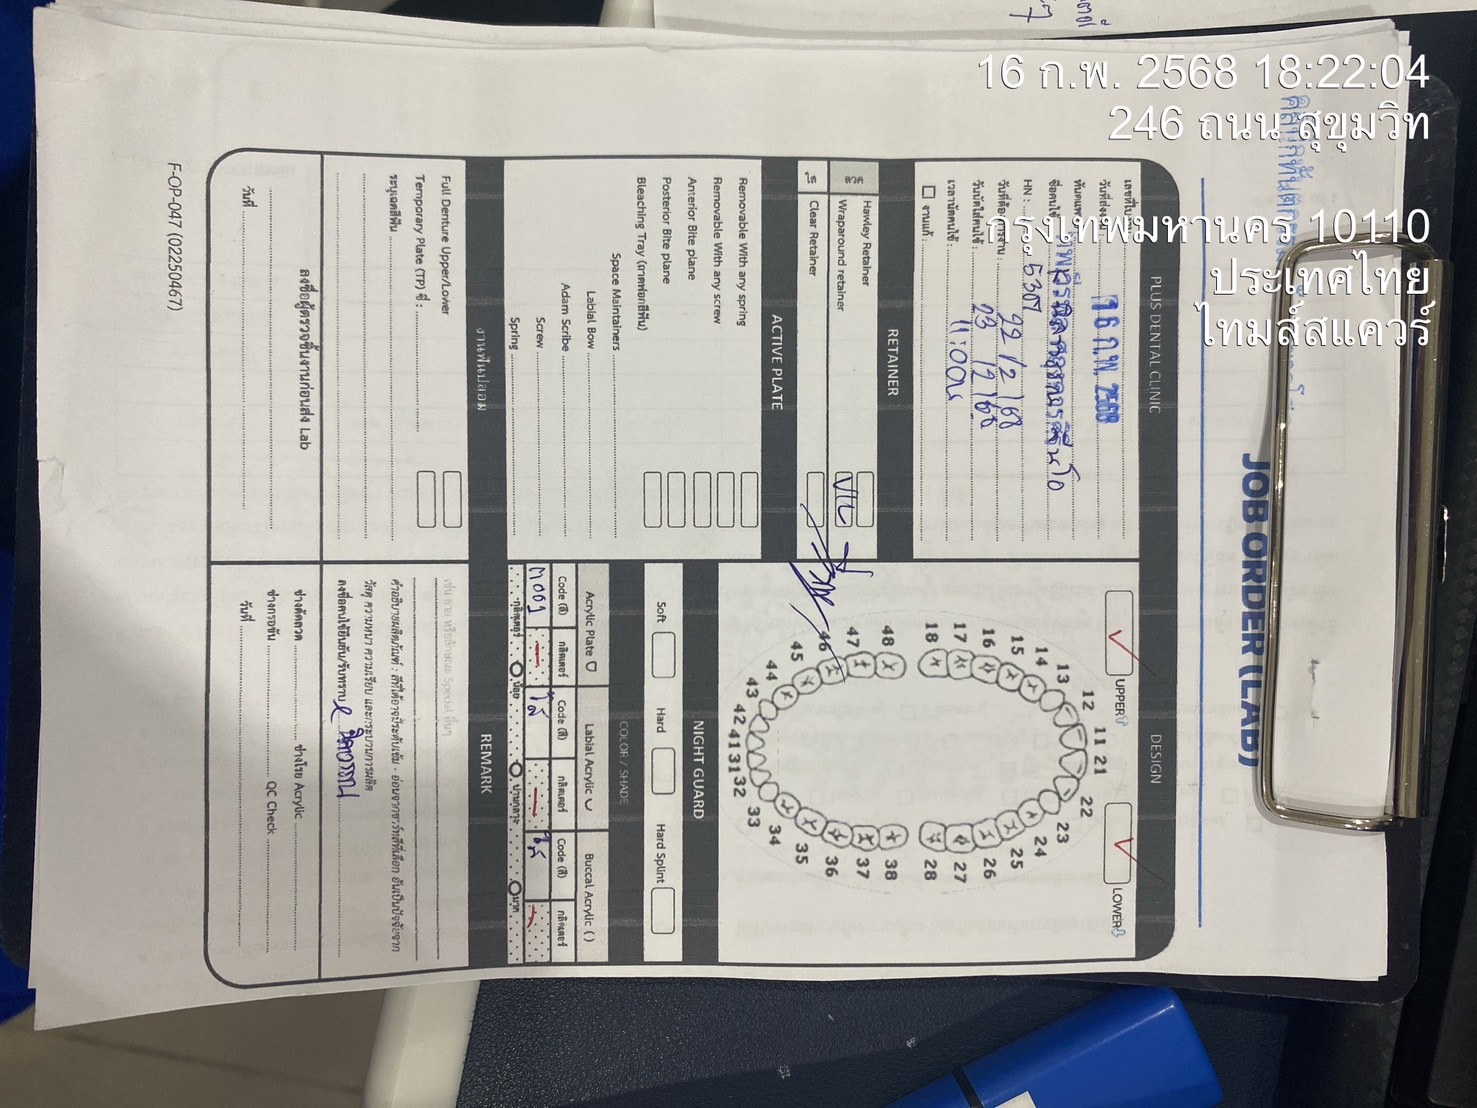 16 ก.พ. 2568 18:22:04
246 ถนน สุขุมวิท
กรุงเทพมหานคร 10110
ประเทศไทย
ไทมส์สแควร์
JOB ORDER (LAB)
PLUS DENTAL CLINIC
เลขที่ใบ
วันที่ส่งง 16 ก.พ. 2568
ทันตแพ
ชื่อคนไข้
HN : 5307
วันที่ต้องการงาน : 22 / 2 / 68
วันนัดใส่คนไข้ : 23 / 2 / 68
เวลานัดคนไข้ : 11:00น
งานแก้ :
RETAINER
ลวด
Hawley Retainer
Wraparound retainer V/L
ใส
Clear Retainer
ACTIVE PLATE
Removable With any spring
Removable With any screw
Anterior Bite plane
Posterior Bite plane
Bleaching Tray (ถาดฟอกสีฟัน)
Space Maintainers
Labial Bow
Adam Scribe
Screw
Spring
งานฟันปลอม
Full Denture Upper/Lower
Temporary Plate (TP) ซี่ :
ระบุเฉดสีฟัน
ลงชื่อผู้ตรวจชิ้นงานก่อนส่ง Lab
วันที่
DESIGN
UPPER
LOWER
18 17 16 15 14 13 12 11 21 22 23 24 25 26 27 28
48 47 46 45 44 43 42 41 31 32 33 34 35 36 37 38
NIGHT GUARD
Soft Hard Hard Splint
COLOR / SHADE
Acrylic Plate Labial Acrylic Buccal Acrylic ( )
Code (สี) กลิตเตอร์ Code (สี) กลิตเตอร์ Code (สี) กลิตเตอร์
ใส ใส
กลิตเตอร์ น้อย ปานกลาง มาก
REMARK
คำอธิบายผลิตภัณฑ์ : สีที่ได้อาจมีระดับเข้ม - อ่อนจากชาร์ทสีที่เลือก อันเป็นปัจจัยจาก
วัสดุ ความหนา ความเรียบ และกระบวนการผลิต
ลงชื่อคนไข้ยืนยัน/รับทราบ
ช่างดัดลวด ช่างโรย Acrylic
ช่างกรอขัน QC Check
วันที่
F-OP-047 (02250467)